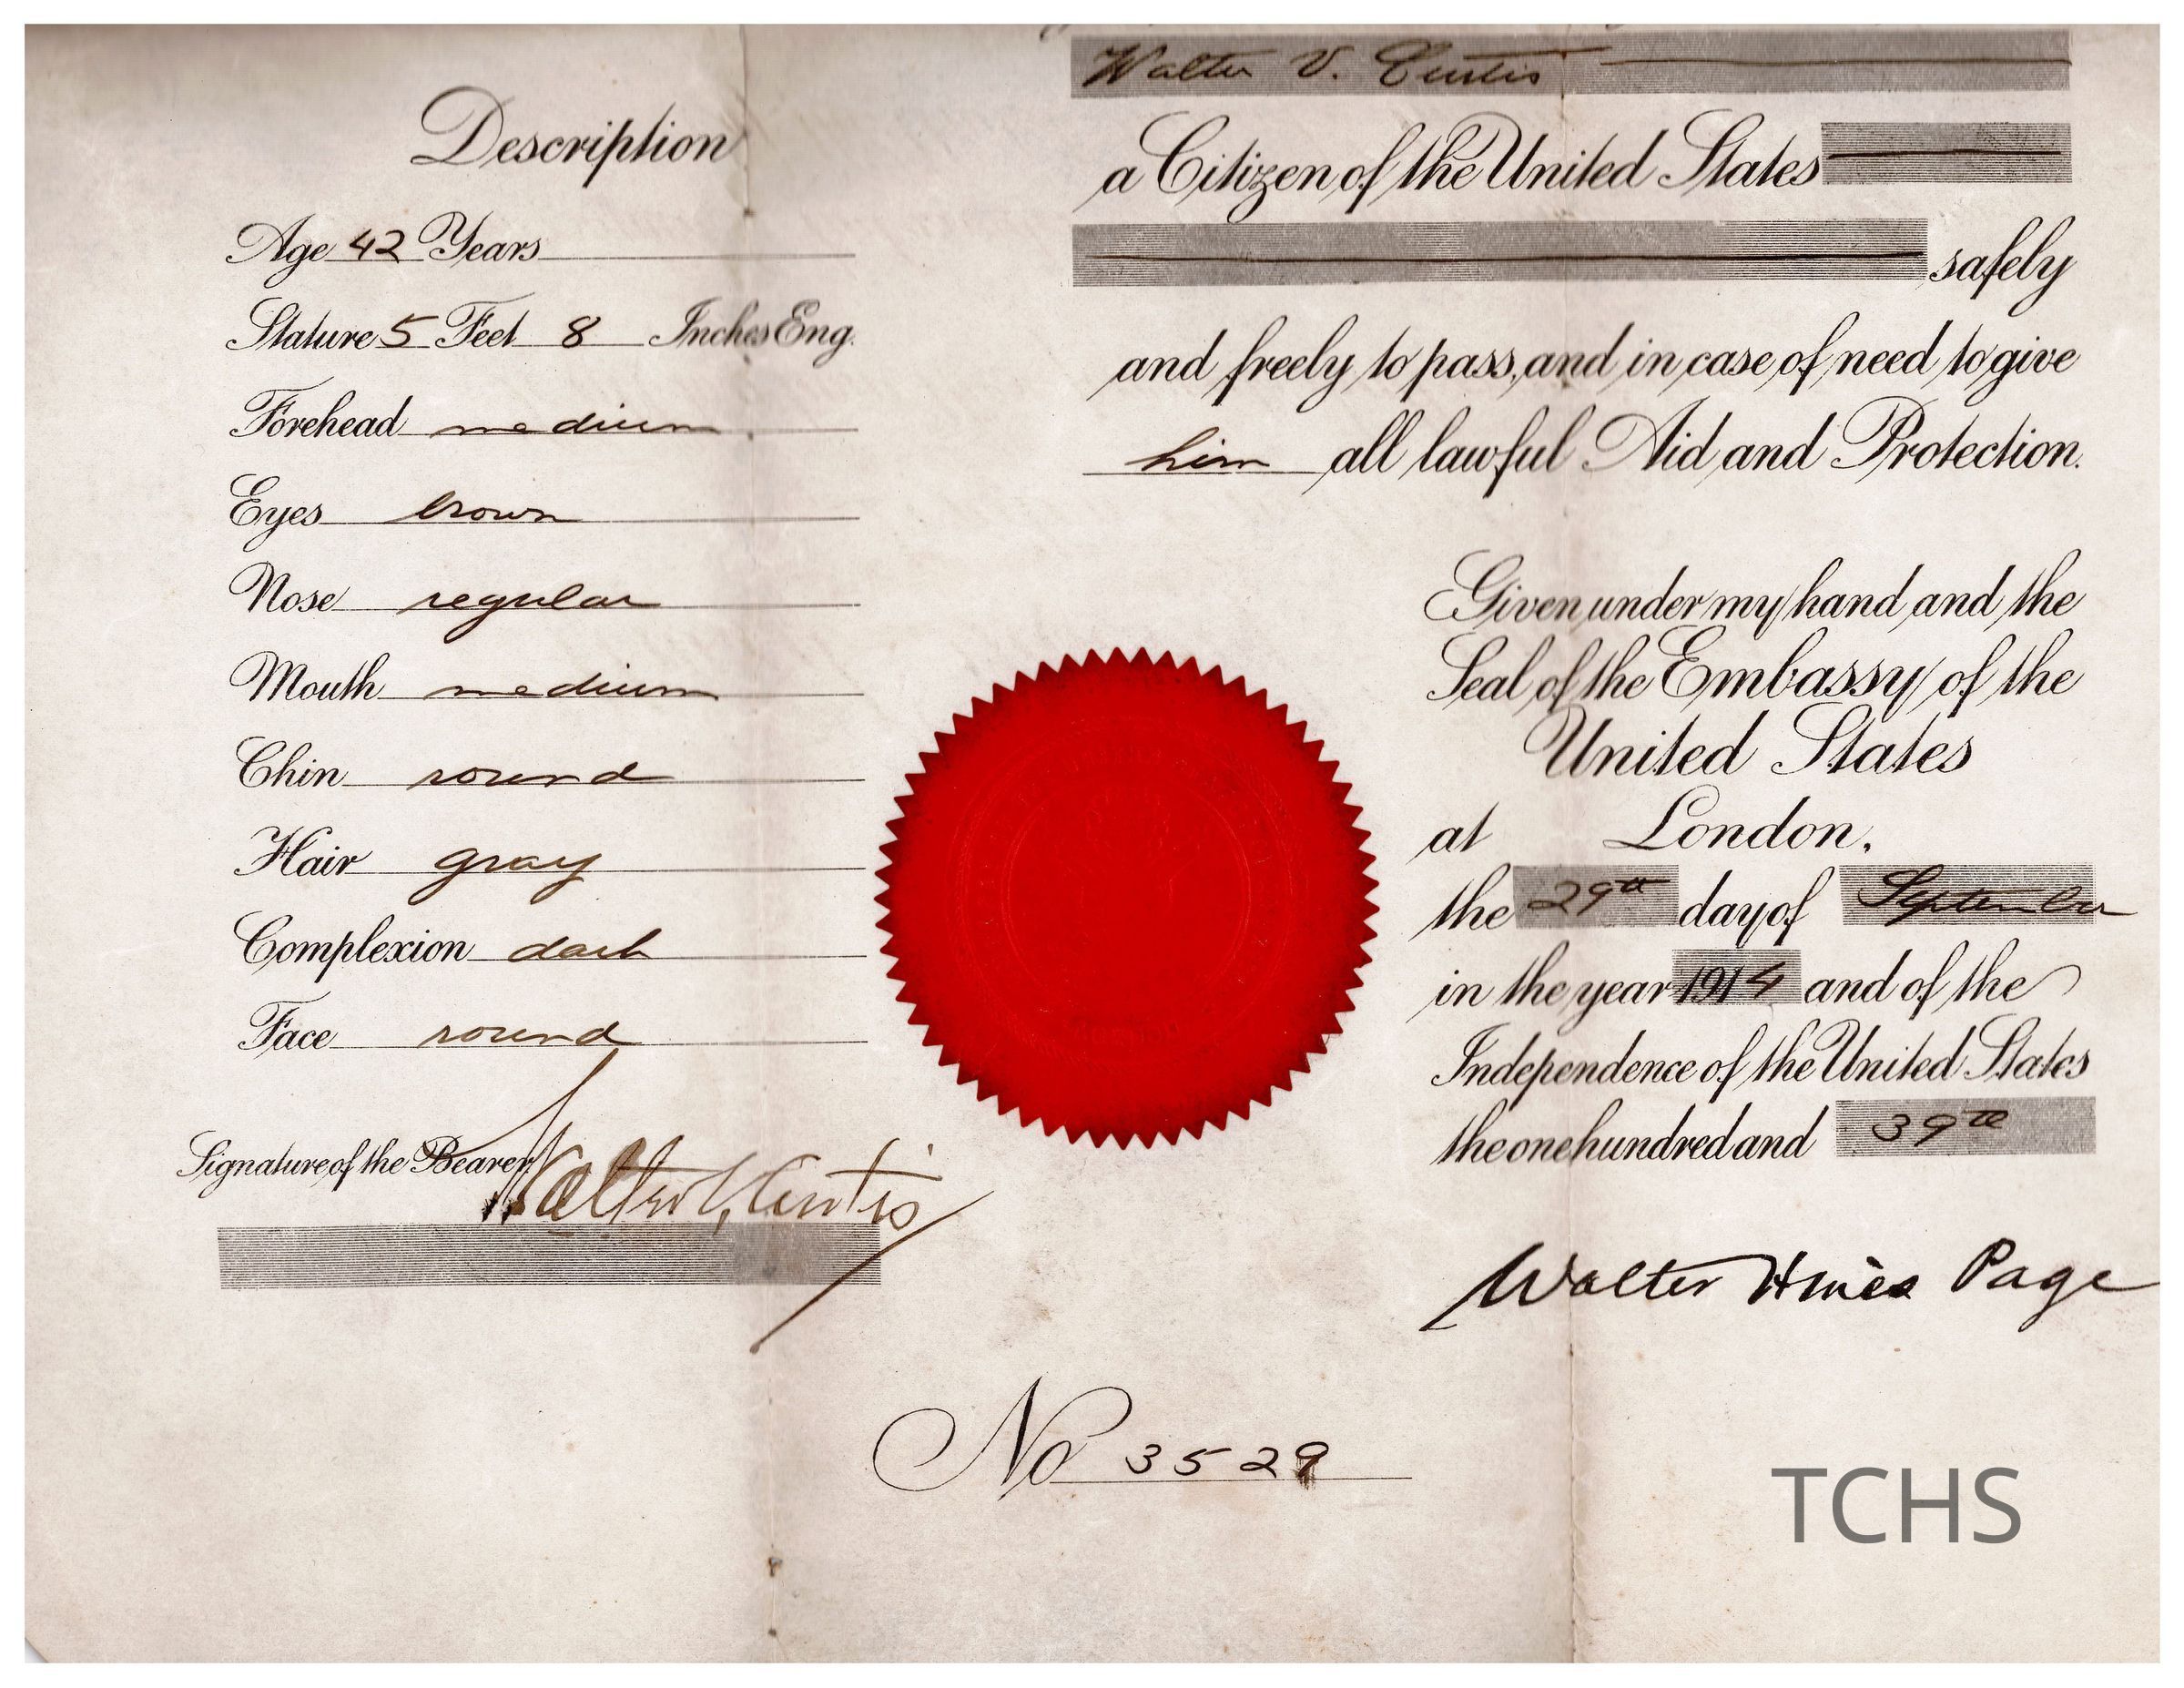 Description
Age 42 Years
Stature 5 Feet 8 Inches Eng.
Forehead medium
Eyes brown
Nose regular
Mouth medium
Chin round
Hair gray
Complexion dark
Face round
Signature of the Bearer
Walter V. Curtis
Walter V. Curtis
a Citizen of the United States
safely
and freely to pass, and in case of need to give
him all lawful Aid and Protection.
Given under my hand and the
Seal of the Embassy of the
United States
at London,
the 29th day of September
in the year 1914 and of the
Independence of the United States
the one hundred and 39th
Walter Hines Page
No 3529
TCHS